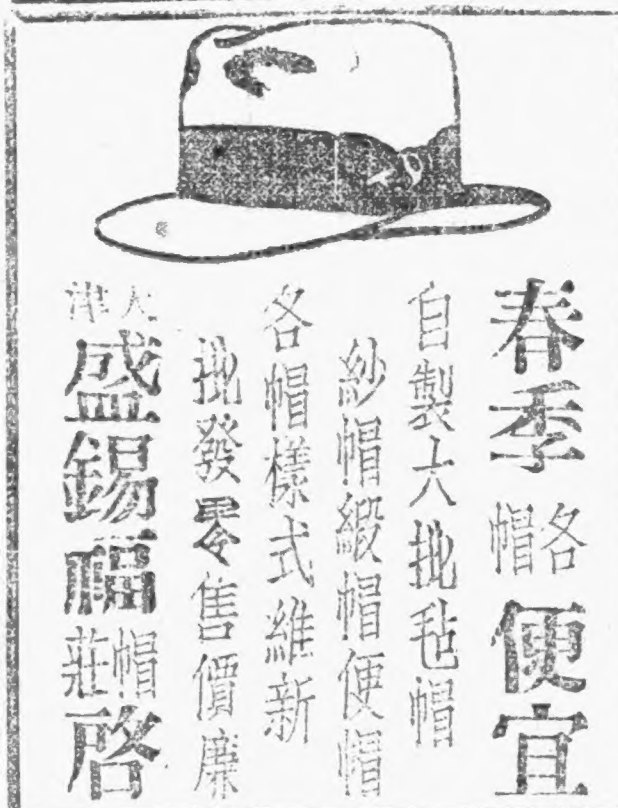 春季各帽便宜
自製大批毡帽
紗帽緞帽便帽
各帽樣式維新
批發零售價廉
天津盛錫福帽莊啓